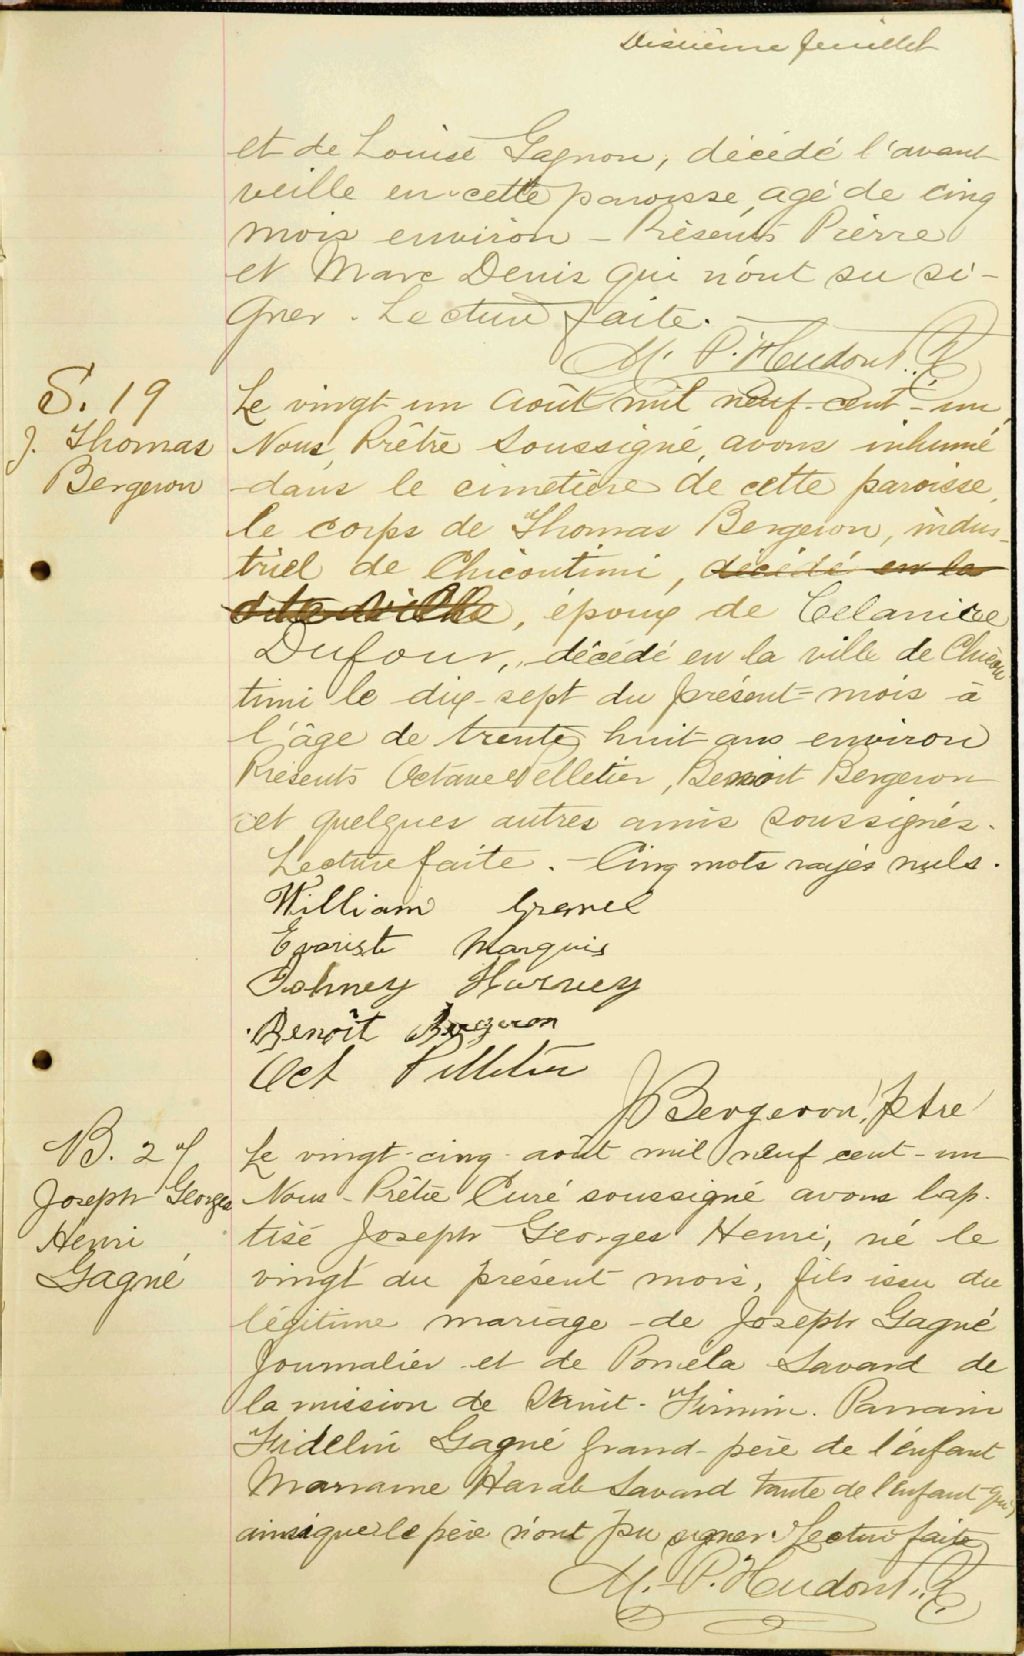 Dixième feuillet
et de Louise Gagnon, décédé l'avant
veille en cette paroisse, agé de cinq
mois environ - Présents Pierre
et Marc Denis qui n'ont su si-
gner. Lecture faite.
M. P. Hudon
S. 19
J. Thomas
Bergeron
Le vingt un août mil neuf-cent-un,
Nous, Prêtre soussigné, avons inhumé
dans le cimetière de cette paroisse,
le corps de Thomas Bergeron, indus-
triel de Chicoutimi, décédé en la
dite ville, époux de Celanire
Dufour, décédé en la ville de Chicou
timi le dix-sept du présent=mois à
l'âge de trente huit ans environ
Présents Octave Pelletier, Benoit Bergeron
et quelques autres amis soussignés.
Lecture faite. - Cinq mots rayés nuls.
William Gravel
Evariste Marquis
Johney Harvey
Benoît Bergeron
Oct Pelletier
J Bergeron, Ptre
B. 27
Joseph Georges
Henri
Gagné
Le vingt-cinq août mil neuf cent-un
Nous Prêtre Curé soussigné avons bap-
tisé Joseph Georges Henri, né le
vingt du présent mois, fils issu du
légitime mariage de Joseph Gagné
Journalier et de Poméla Savard de
la mission de Saint-Firmin. Parrain
Fidelin Gagné grand-père de l'enfant
Marraine Sarah Savard tante de l'enfant qui
ainsi que le père n'ont pu signer. Lecture faite
M. P. Hudon